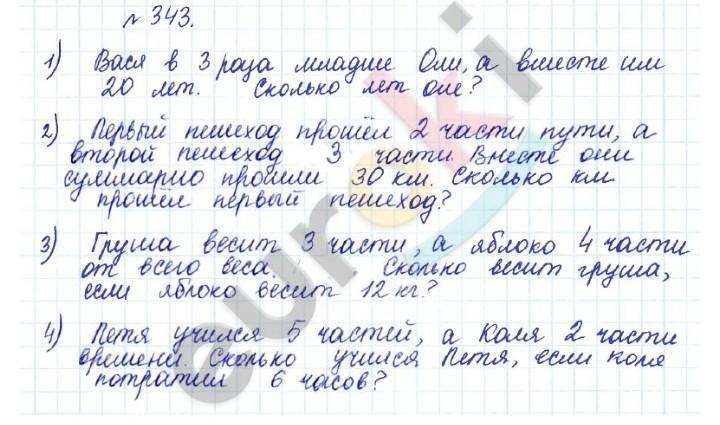 № 343.
1) Вася в 3 раза младше Оли, а вместе им
20 лет. Сколько лет оле?
2) Первый пешеход прошёл 2 части пути, а
второй пешеход 3 части. Вместе они
суммарно прошли 30 км. Сколько км
прошёл первый пешеход?
3) Груша весит 3 части, а яблоко 4 части
от всего веса. Сколько весит груша,
если яблоко весит 12 кг.?
4) Петя учился 5 частей, а Коля 2 части
времени. Сколько учился Петя, если коля
потратил 6 часов?
euroki